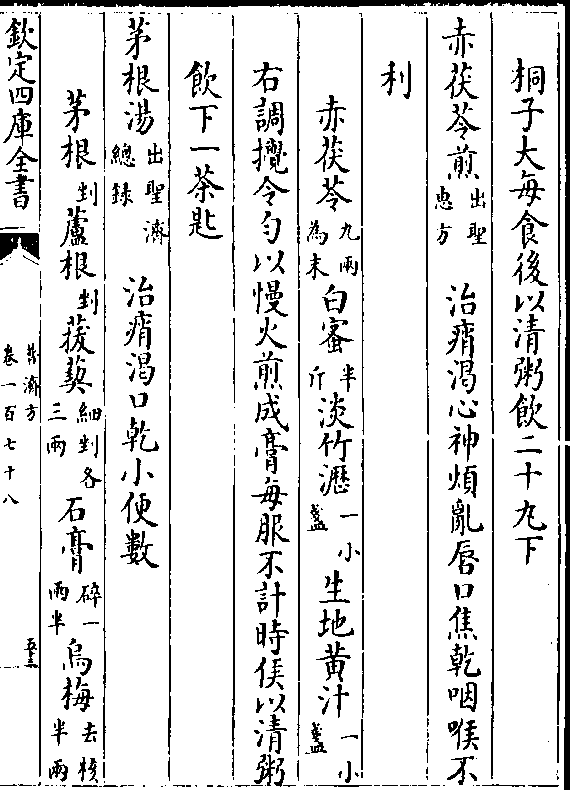 桐子大每食後以清粥飲二十九下
赤茯苓煎出聖惠方　治痟渴心神煩亂唇口焦乾咽喉不
利
赤茯苓九兩為末白蜜半斤淡竹瀝一小盞生地黄汁一小盞
右調攪令勻以慢火煎成膏每服不計時候以清粥
飲下一茶匙
茅根湯出聖濟總錄　治痟渴口乾小便數
茅根剉蘆根剉菝葜細剉各三兩石膏碎一兩半烏梅去核半兩
欽定四庫全書
普濟方
卷一百七十八